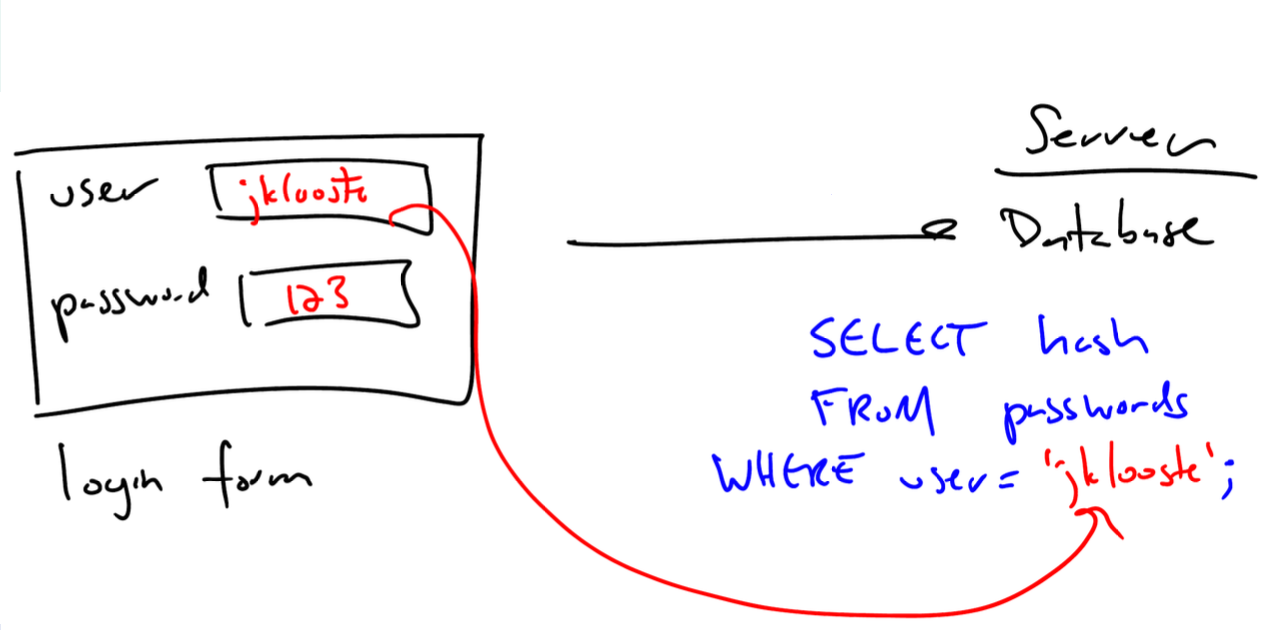 user jklooste
password 123
login form
Server
Database
SELECT hash
FROM passwords
WHERE user = 'jklooste';